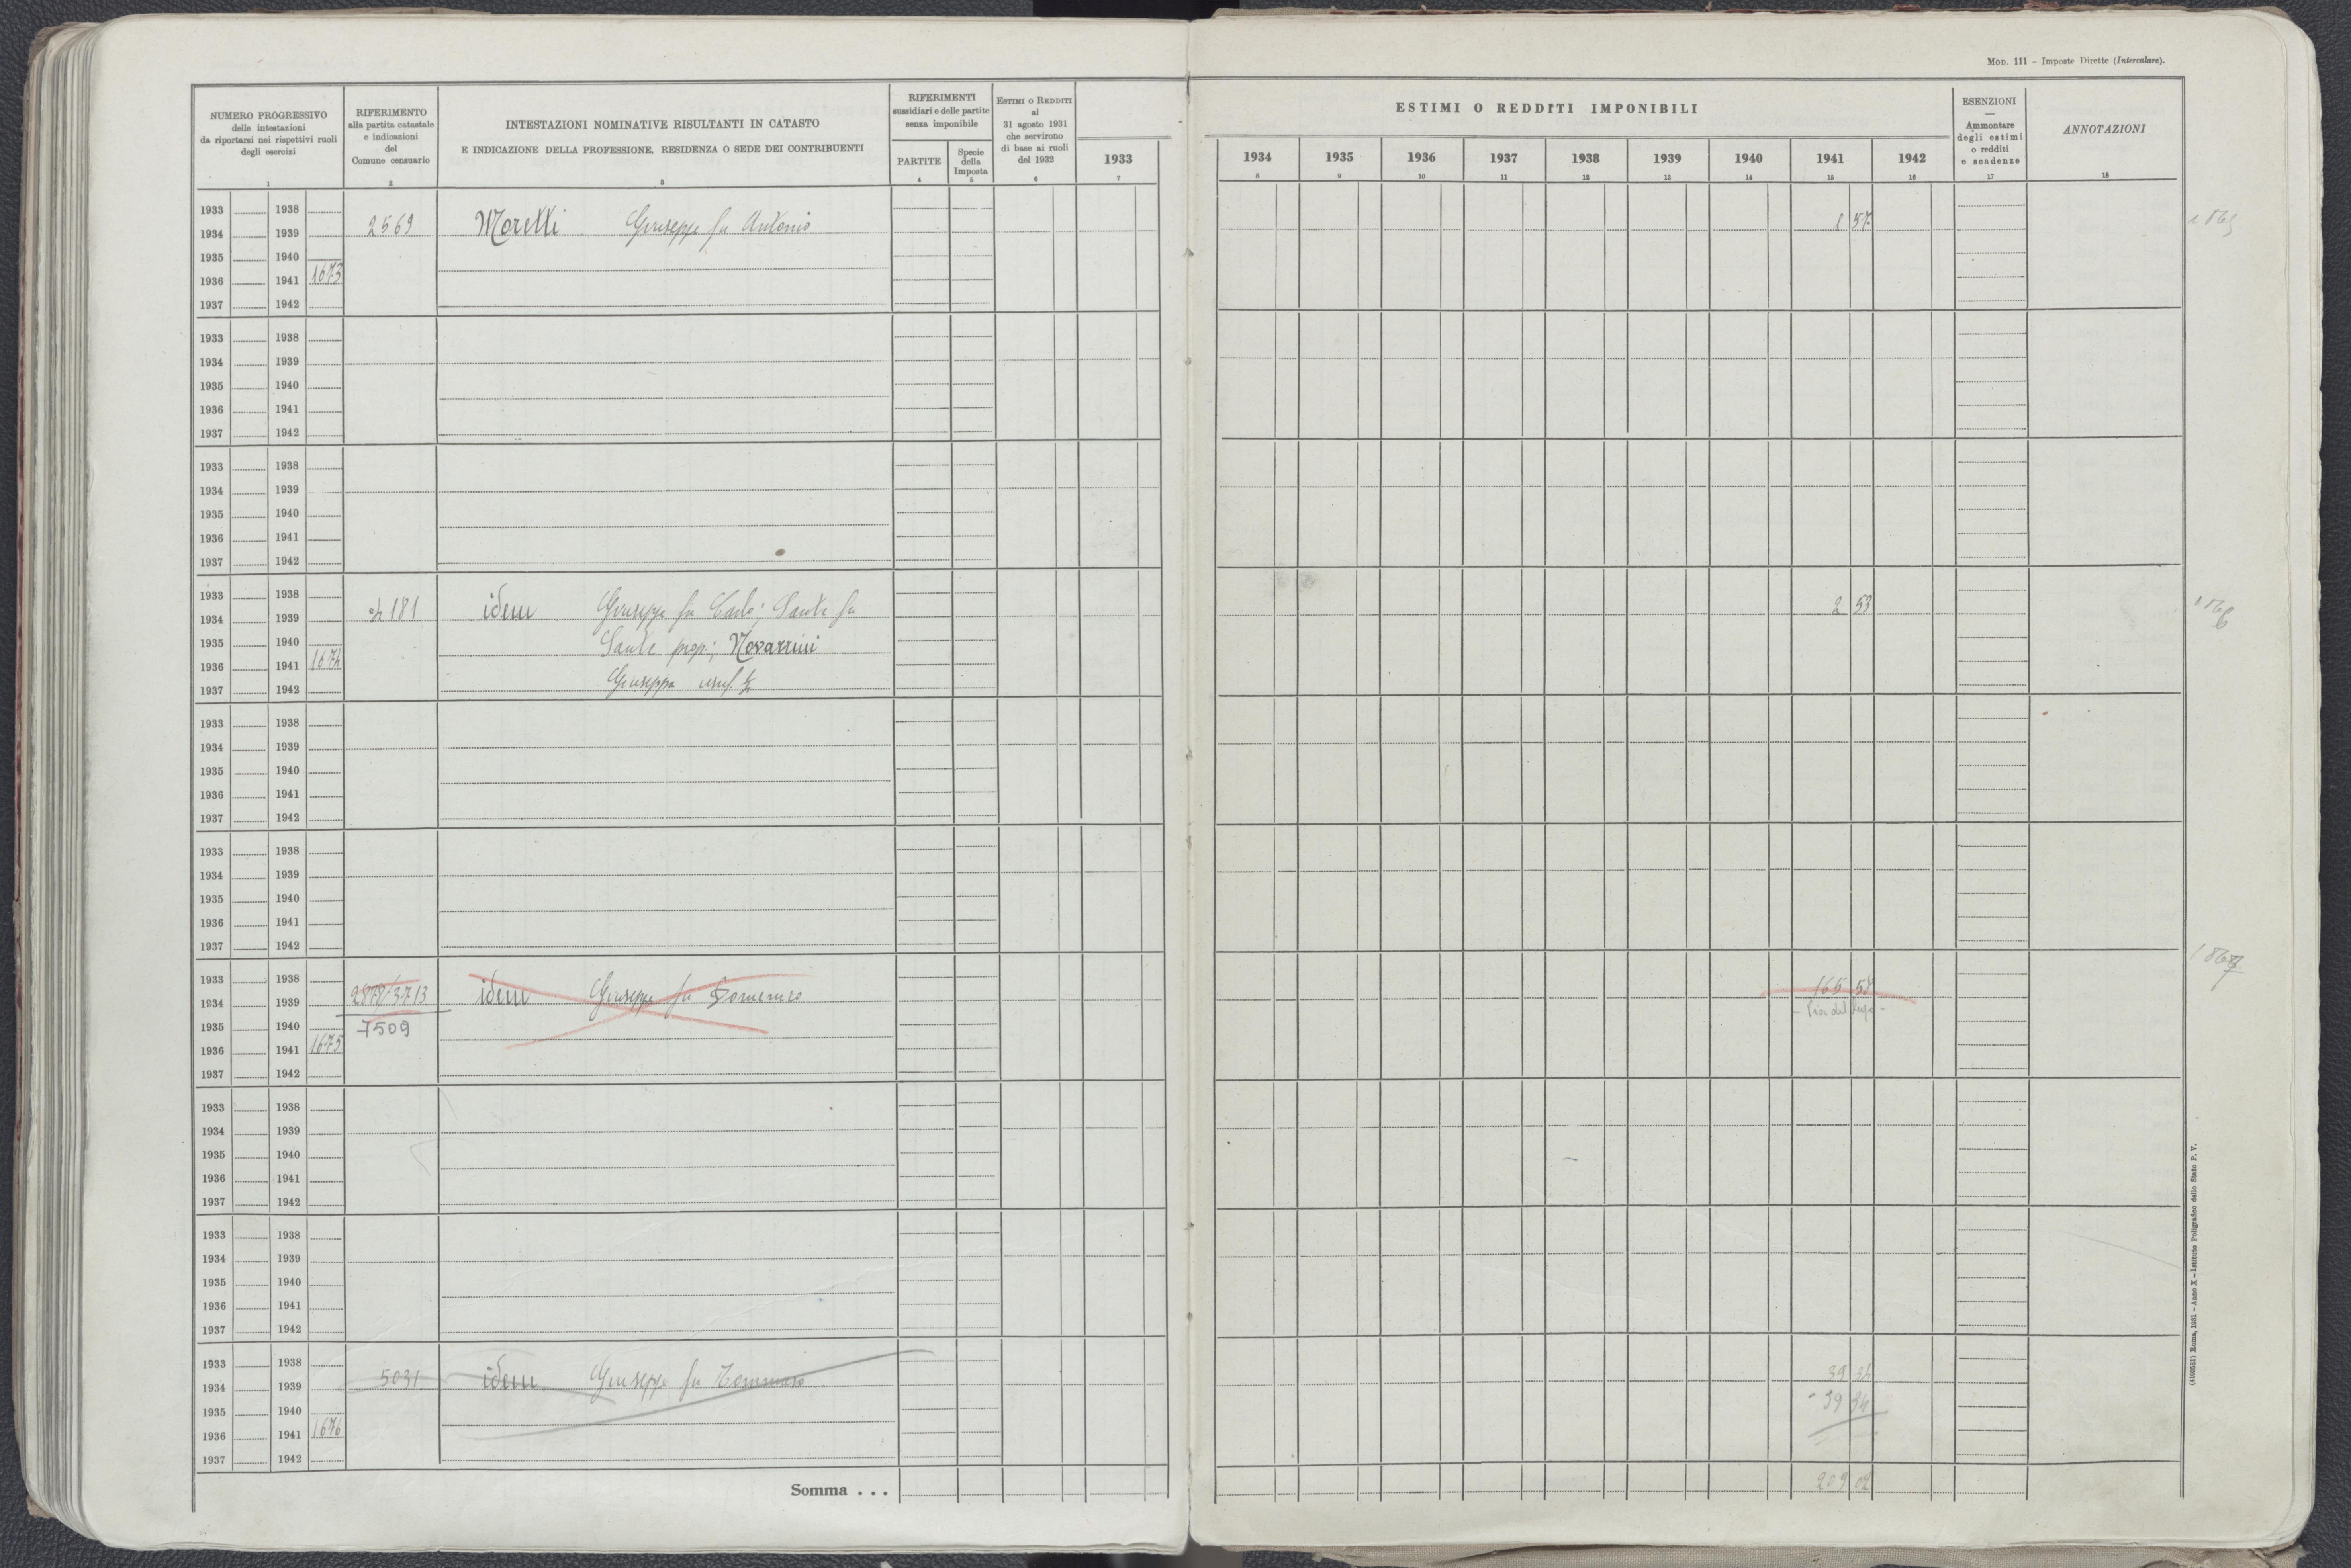 MOD. 111 – Imposte Dirette (Intercalare).
NUMERO PROGRESSIVO
delle intestazioni
da riportarsi nei rispettivi ruoli
degli esercizi
RIFERIMENTO
alla partita catastale
e indicazioni
del
Comune censuario
INTESTAZIONI NOMINATIVE RISULTANTI IN CATASTO
E INDICAZIONE DELLA PROFESSIONE, RESIDENZA O SEDE DEI CONTRIBUENTI
RIFERIMENTI
sussidiari e delle partite
senza imponibile
PARTITE
Specie
della
Imposta
ESTIMI O REDDITI
al
31 agosto 1931
che servirono
di base ai ruoli
del 1932
ESTIMI O REDDITI IMPONIBILI
1933 1934 1935 1936 1937 1938 1939 1940 1941 1942
ESENZIONI
—
Ammontare
degli estimi
o redditi
e scadenze
ANNOTAZIONI
1 2 3 4 5 6 7 8 9 10 11 12 13 14 15 16 17 18
1933 1938
1934 1939 2569 Moretti Giuseppe fu Antonio 1 57
1935 1940
1936 1941 1673
1937 1942
1933 1938
1934 1939
1935 1940
1936 1941
1937 1942
1933 1938
1934 1939
1935 1940
1936 1941
1937 1942
1933 1938
1934 1939 4181 idem Giuseppe fu Carlo; Sante fu 2 53
1935 1940 Sante prop.; Novarrini
1936 1941 1674
1937 1942 Giuseppa usuf. ½
1933 1938
1934 1939
1935 1940
1936 1941
1937 1942
1933 1938
1934 1939
1935 1940
1936 1941
1937 1942
1933 1938
1934 1939 2878/3713 idem Giuseppe fu Domenico 165 58
1935 1940 7509
1936 1941 1675
1937 1942
1933 1938
1934 1939
1935 1940
1936 1941
1937 1942
1933 1938
1934 1939
1935 1940
1936 1941
1937 1942
1933 1938
1934 1939 5031 idem Giuseppe fu Tommaso 39 34
1935 1940 - 39 34
1936 1941 1676
1937 1942
Somma . . . 209 02
(4100551) Roma, 1931 – Anno X – Istituto Poligrafico dello Stato P. V.